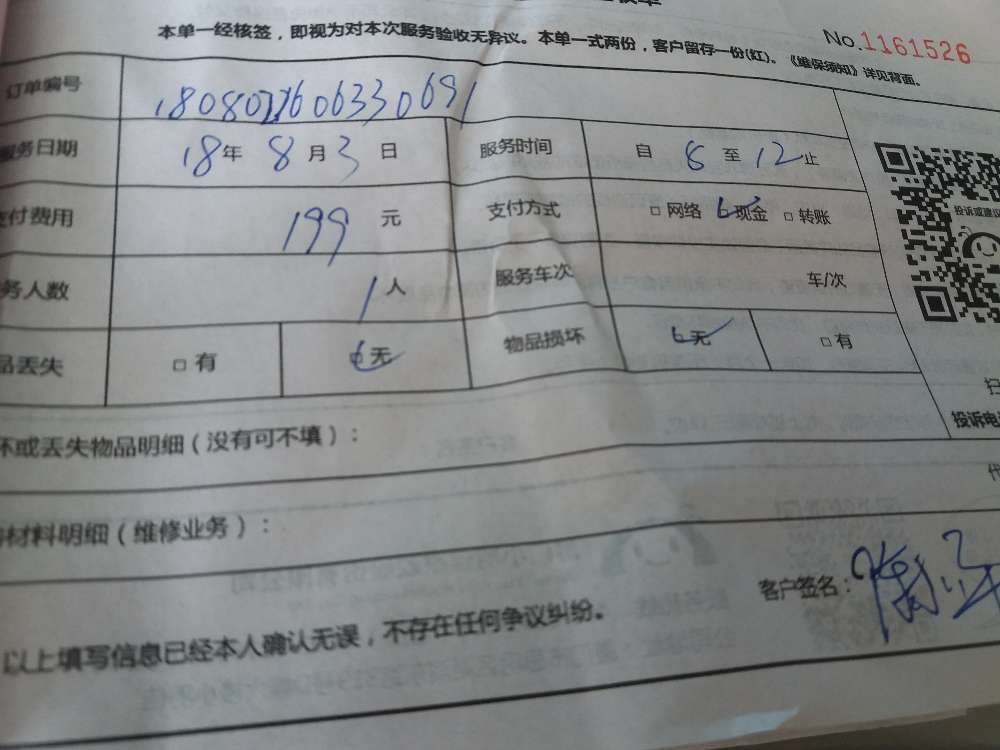 本单一经核签，即视为对本次服务验收无异议。本单一式两份，客户留存一份(红)。《维保须知》详见背面。
No.1161526
订单编号
服务日期 18年 8月 3日 服务时间 自 8 至 12 止
支付费用 199 元 支付方式 □ 网络 现金 □ 转账
务人数 1人 服务车次 车/次
品丢失 □ 有 无 物品损坏 无 □ 有
投诉或建议
扫
投诉电
坏或丢失物品明细（没有可不填）：
代
材料明细（维修业务）：
客户签名：
以上填写信息已经本人确认无误，不存在任何争议纠纷。